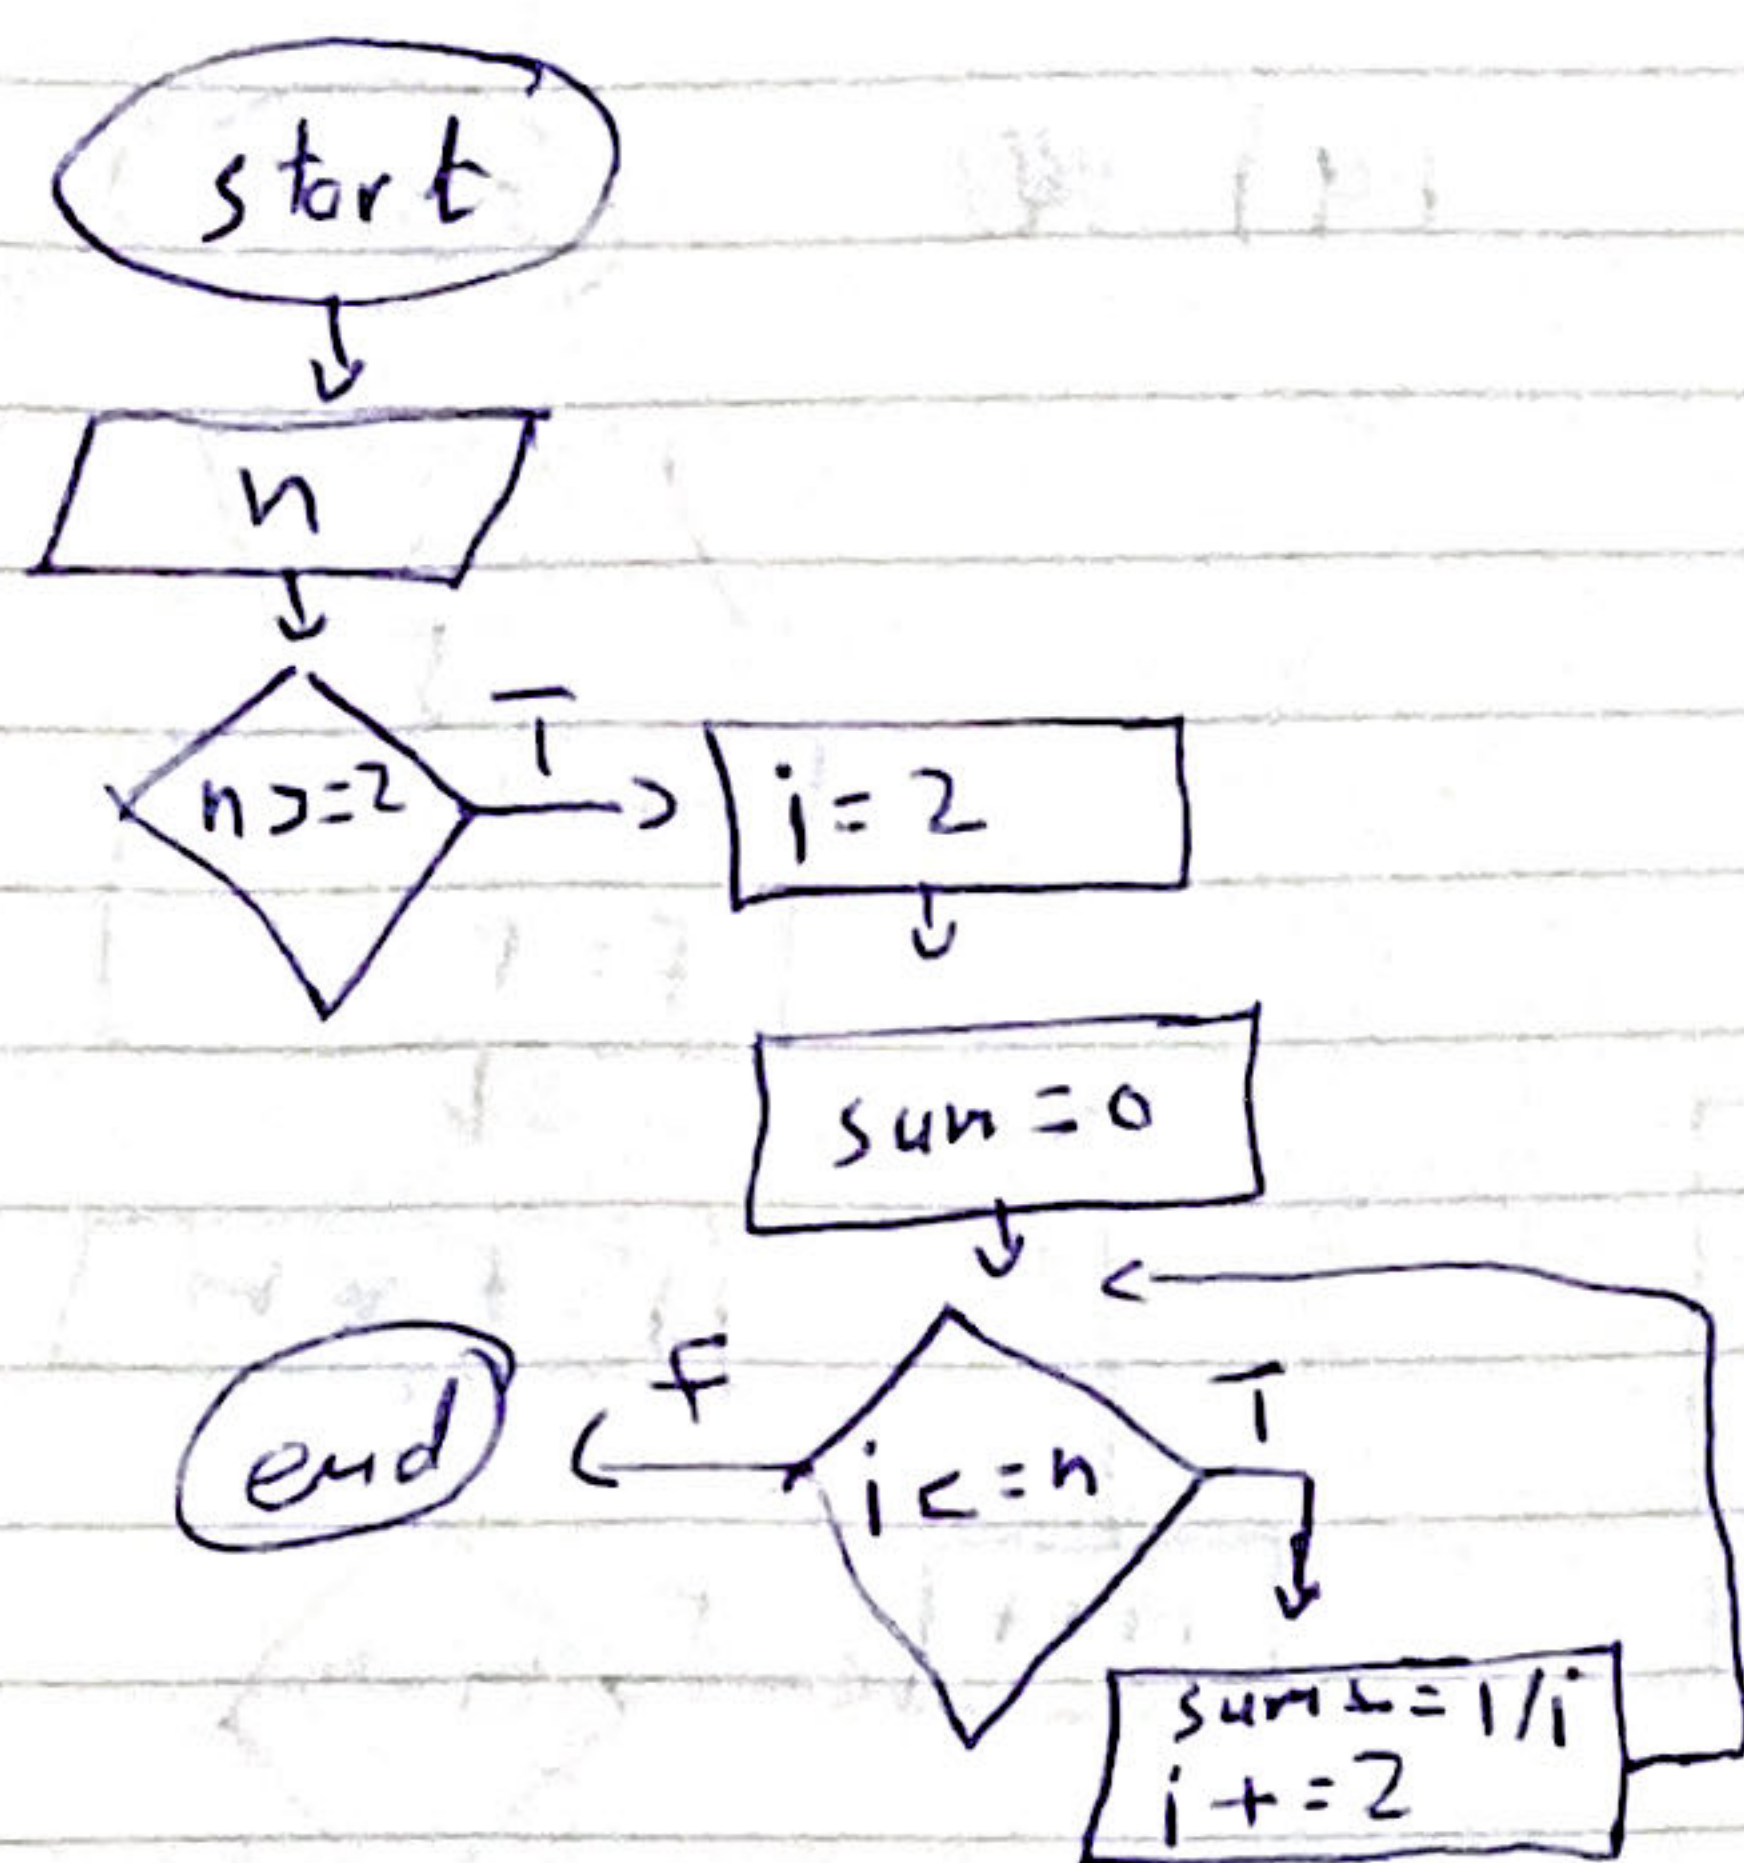 start
n
n>=2
T
i=2
sum=0
F
T
end
i<=n
sum+=1/i
i+=2